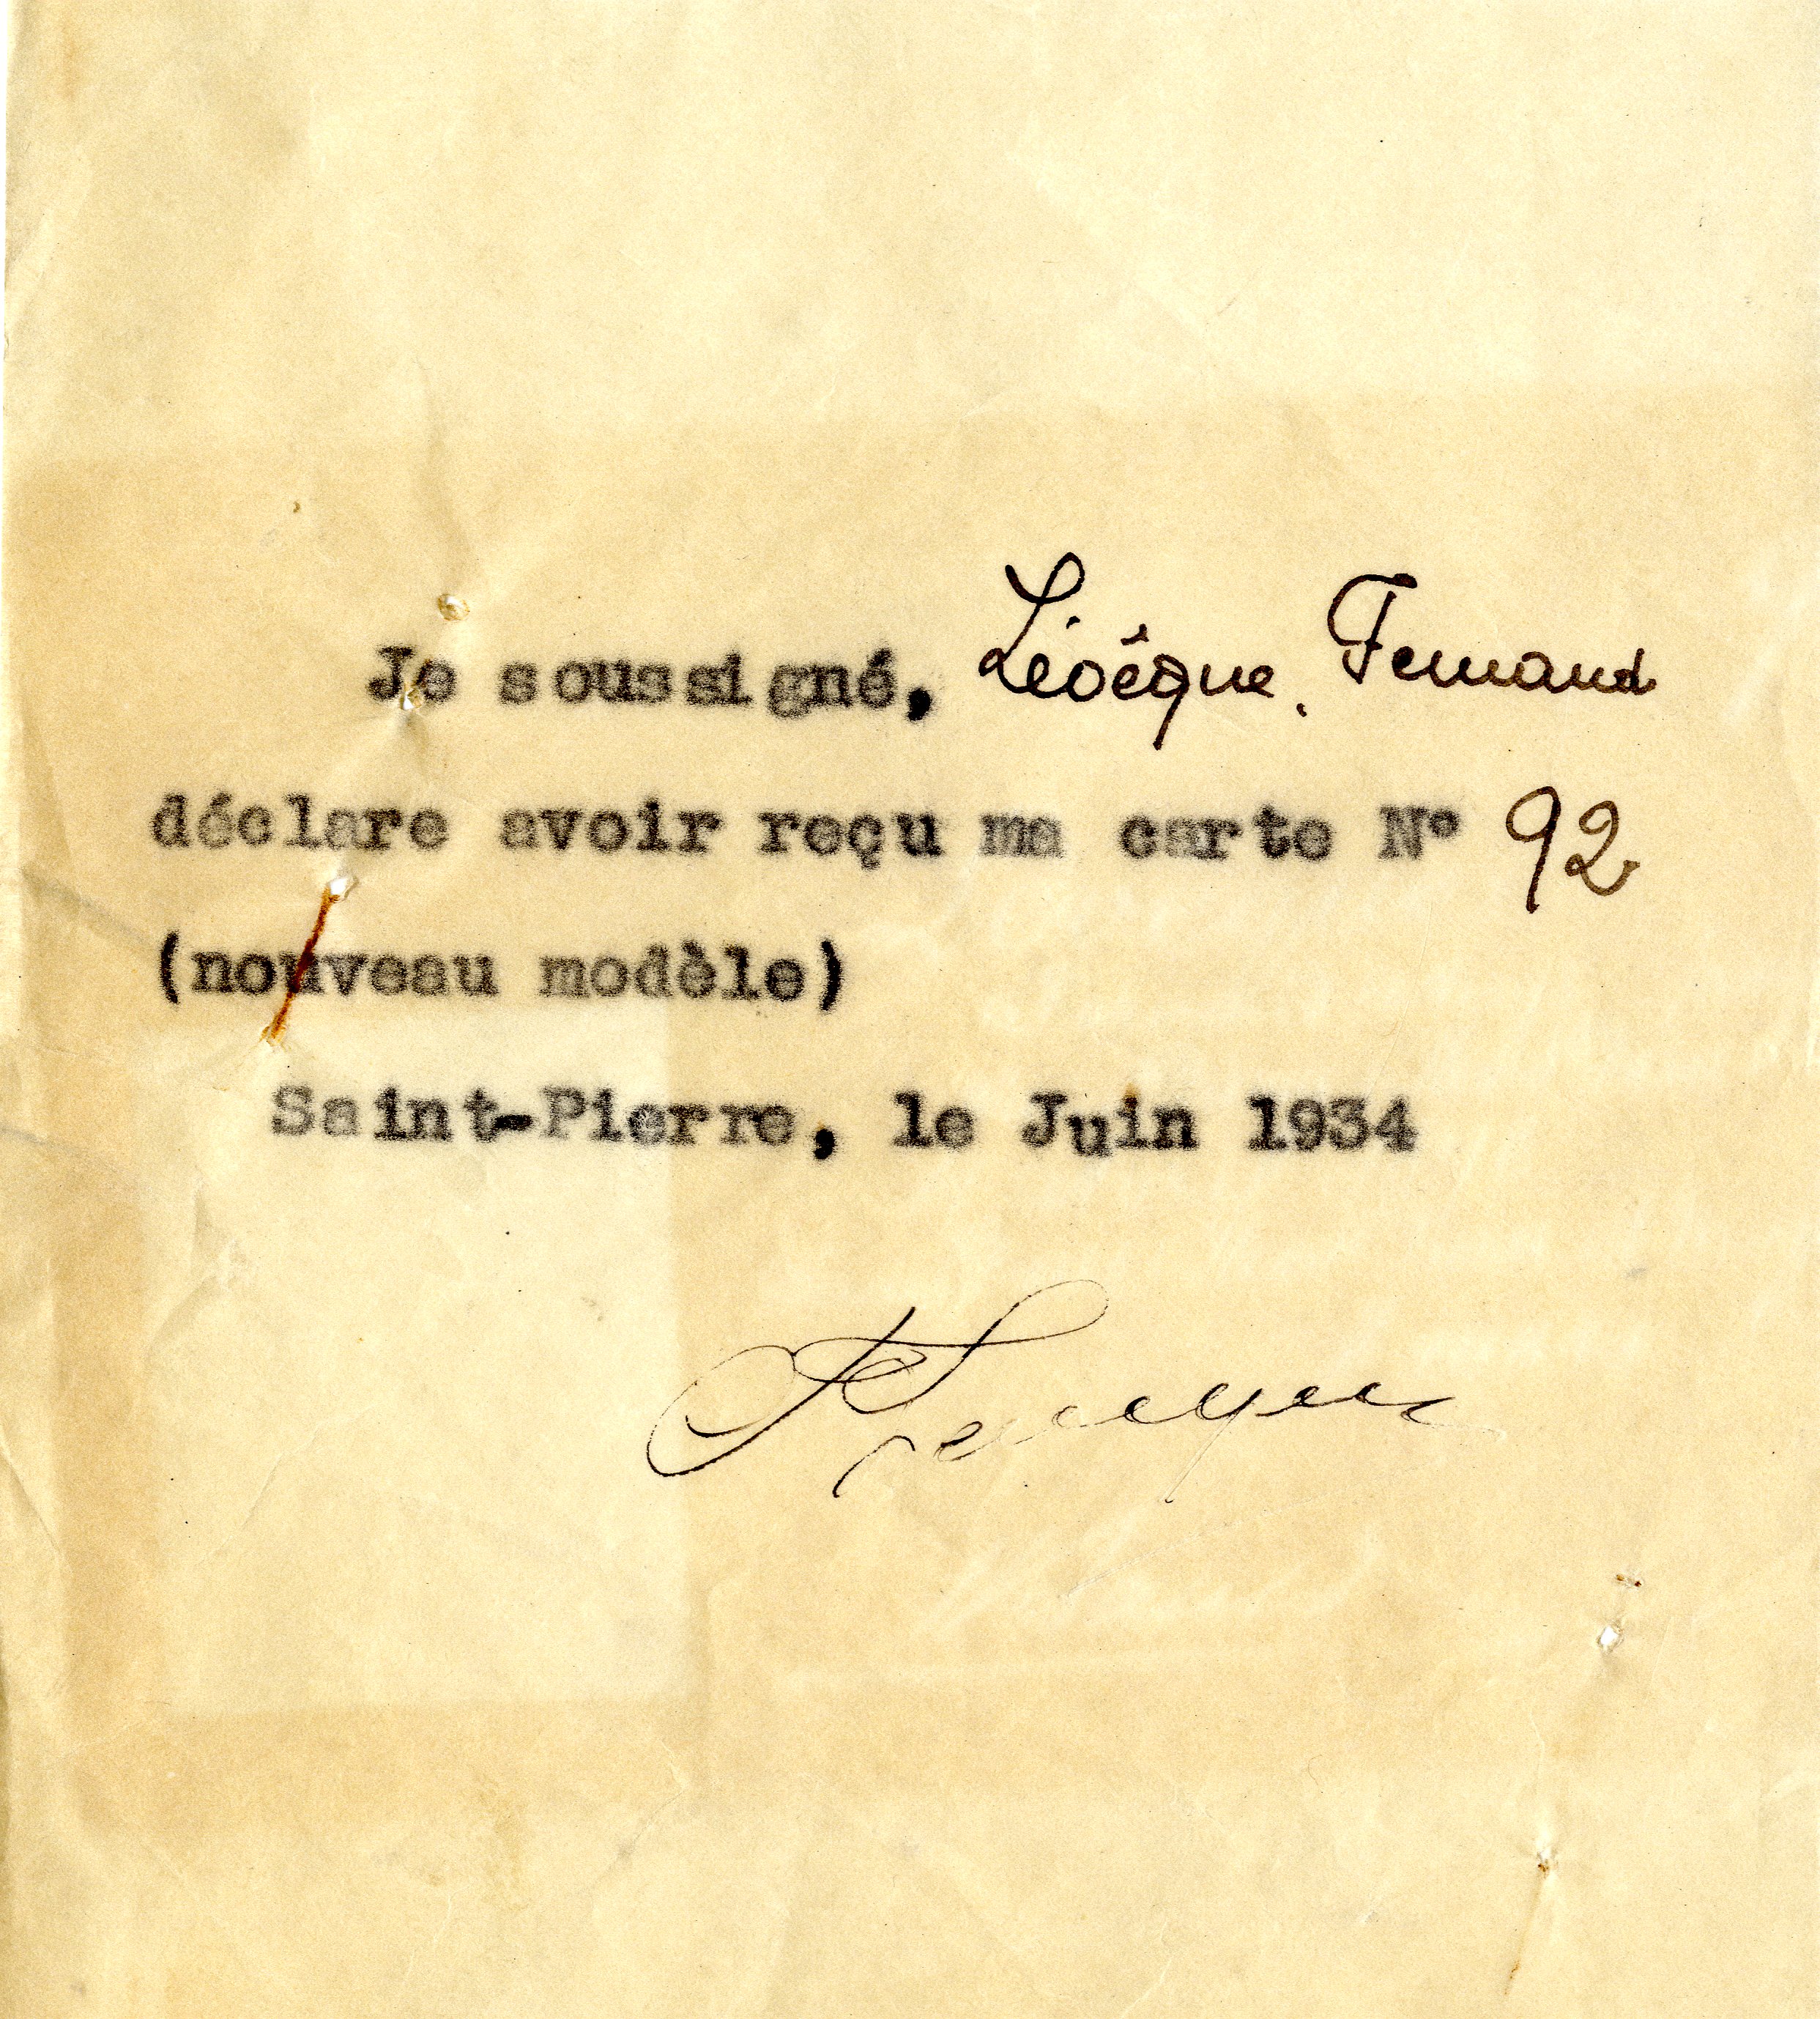 Je soussigné, Lévêque. Fernand
déclare avoir reçu ma carte N° 92
(nouveau modèle)
Saint-Pierre, le Juin 1934